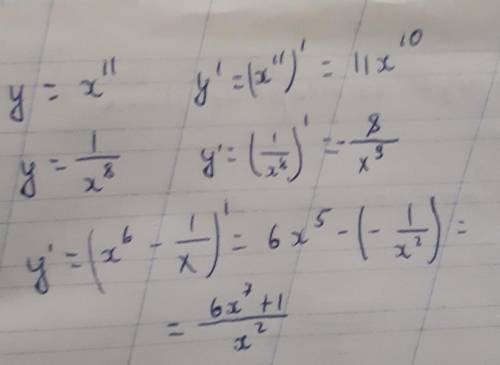 y = x¹¹ y' = (x¹¹)' = 11x¹⁰
y = 1/x⁸ y' = (1/x⁸)' = -8/x⁹
y' = (x⁶ - 1/x)' = 6x⁵ - (-1/x²) =
= (6x⁷+1)/x²